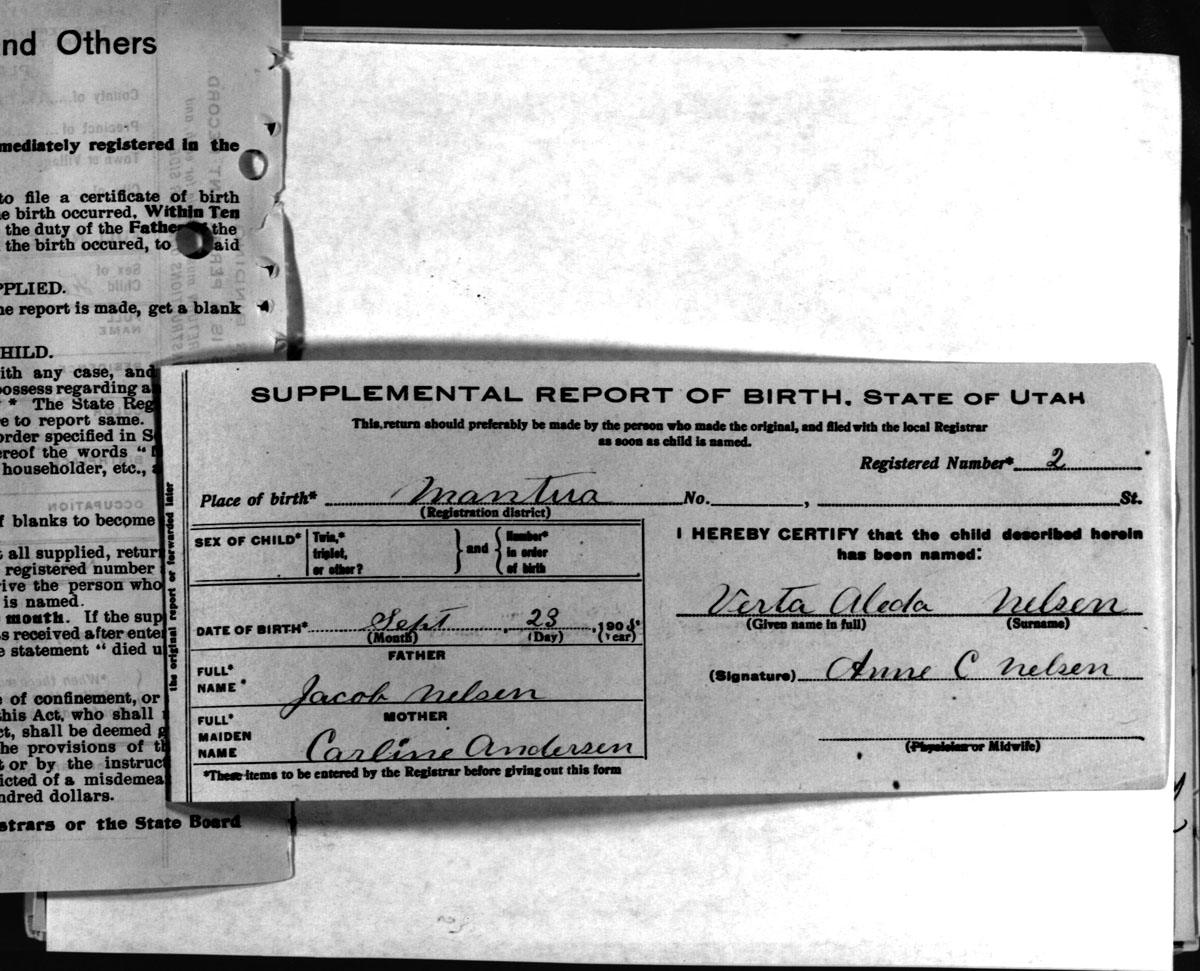 nd Others
mediately registered in the
to file a certificate of birth
e birth occurred, Within Ten
the duty of the Father of the
the birth occured, to aid
PPLIED.
he report is made, get a blank
HILD.
ith any case, and
possess regarding a
* The State Reg
e to report same.
order specified in S
ereof the words "
householder, etc.,
f blanks to become
all supplied, retur
registered number
ive the person who
is named.
month. If the sup
s received after ente
e statement " died u
e of confinement, or
this Act, who shall
ct, shall be deemed g
he provisions of t
t or by the instruc
icted of a misdemea
ndred dollars.
strars or the State Board
the original report or forwarded later
SUPPLEMENTAL REPORT OF BIRTH, STATE OF UTAH
This return should preferably be made by the person who made the original, and filed with the local Registrar
as soon as child is named.
Registered Number* 2
Place of birth* Mantua No. , St.
(Registration district)
SEX OF CHILD* Twin,* triplet, or other? } and { Number* in order of birth
DATE OF BIRTH* Sept 23, 190
(Month) (Day) (Year)
FATHER
FULL* NAME* Jacob Nelsen
MOTHER
FULL* MAIDEN NAME Carline Andersen
*These items to be entered by the Registrar before giving out this form
I HEREBY CERTIFY that the child described herein
has been named:
Verta Aleda Nelsen
(Given name in full) (Surname)
(Signature) Anne C Nelsen
(Physician or Midwife)
OCCUPATION